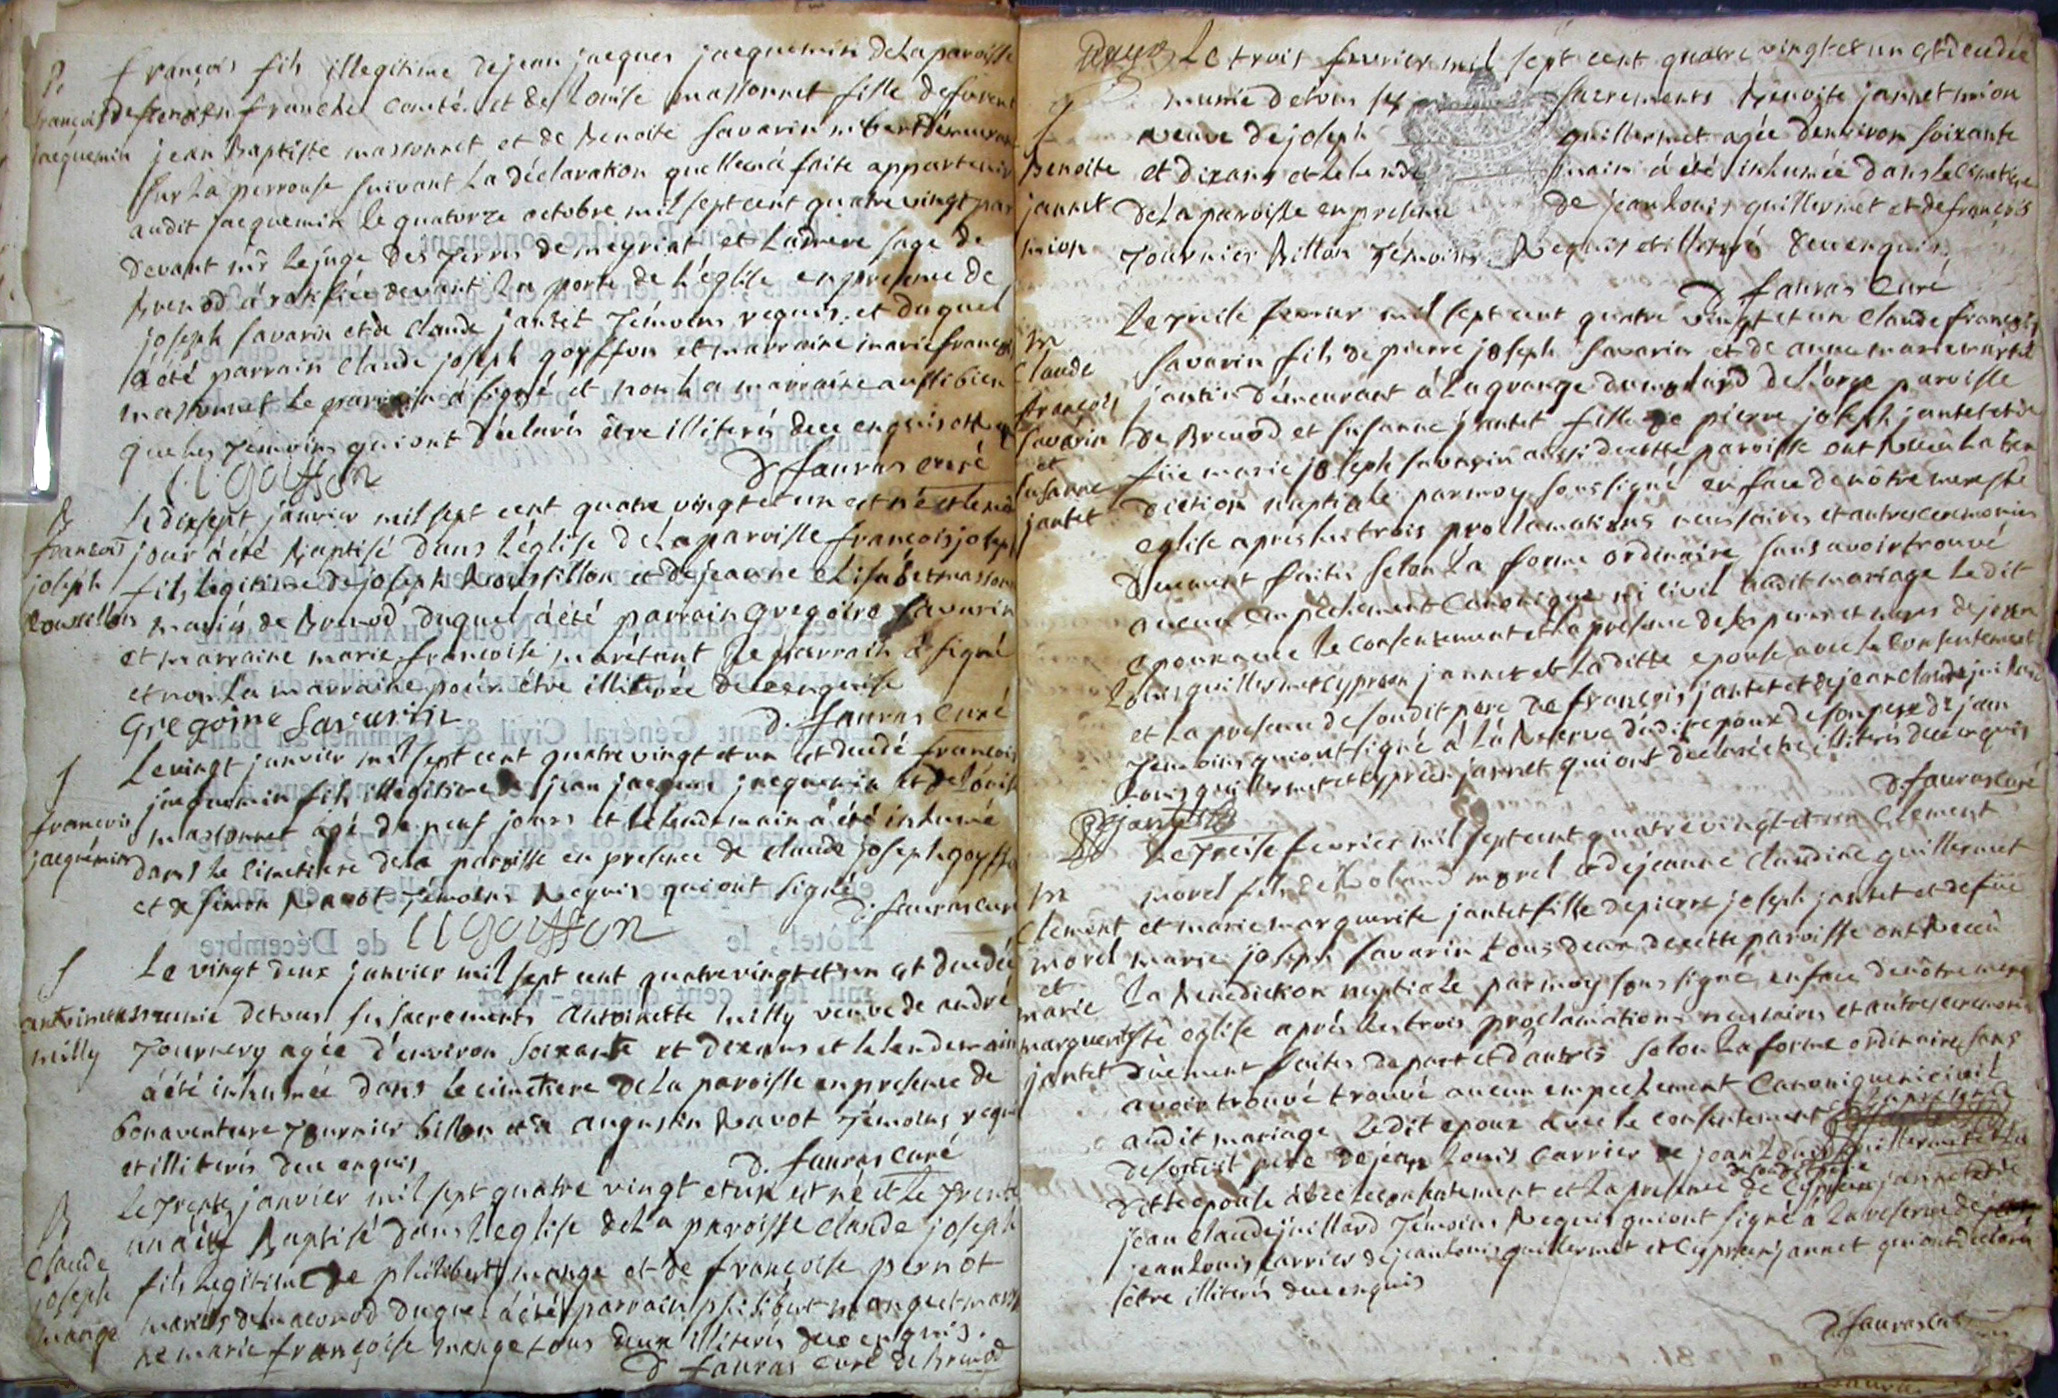 B.
françois
jacquemin
françois fils illegitime de jean jacques jacquemin de la paroisse
en franche comté et de Louise massonnet fille de furent
jean Baptiste massonnet et de Benoite Savarin
sur la perrouse suivant la déclaration quelle en à faite appartenir
audit jacquemin le quatorze octobre mil sept cent quatre vingt par
devant mr le juge des terres de meyriat et
Brenod à ratifiée devant la porte de l'église en presence de
joseph Savarin et de Claude jantet témoins requis et duquel
à été parrain Claude joseph goyffon et marraine marie françoise
massonnet le parrain à signé et non la marraine aussi bien
que les témoins qui ont déclarés être illiterés de ce enquis
Cl goiffon D. fauras curé
B
françois
joseph
Roussillon
Le dixsept janvier mil sept cent quatre vingt et un est né et le même
jour à été Baptisé dans l'église de la paroisse françois joseph
fils légitime de joseph Roussillon et de jeanne Elisabet massonnet
mariés de Brenod duquel à été parrain Gregoire Savarin
et marraine marie françoise le parrain à signé
et non la marraine pour être illiterée de ce enquise
Gregoire Savarin D. fauras curé
S
françois
jacquemin
Le vingt janvier mil sept cent quatre vingt et un est decedé françois
jacquemin fils illégitime de jean jacques jacquemin et de Louise
massonnet agé de neuf jours et le lendemain à été inhumé
dans le cimetiere de la paroisse en presence de claude joseph goyffon
et de simon Ravot témoins Requis qui ont signé
Cl goiffon D. fauras curé
S
antoinette
milly
Le vingt deux janvier mil sept cent quatre vingt et un est decedée
munie de tous ses sacrements Antoinette milly veuve de andré
Tournery agée d'environ soixante et dix ans et le lendemain
à été inhumée dans le cimetiere de la paroisse en presence de
bonaventure Tournier billon et de augustin Ravot témoins requis
et illiterés de ce enquis
D. fauras curé
B
Claude
joseph
mange
Le trente janvier mil sept quatre vingt et un est né et le trente
un à été Baptisé dans l'église de la paroisse Claude joseph
fils légitime de philibert mange et de françoise pernot
mariés de macornod duquel à été parrain philibert mange et marrai
ne marie françoise mange tous deux illiterés de ce enquis.
D fauras curé de Brenod
deux
S
Benoite
jannet
mion
Le trois fevrier mil sept cent quatre vingt et un est decedée
munie de tous ses sacrements Benoite jannet mion
veuve de joseph guillermet agée d'environ soixante
et dix ans et le lendemain à été inhumée dans le cimetiere
de la paroisse en presence de jean louis guillermet et de françois
Tournier Billon témoins Requis et illiterés de ce enquis
D fauras Curé
M
Claude
françois
Savarin
et
Susanne
jantet
Le treise fevrier mil sept cent quatre vingt et un Claude françois
Savarin fils de pierre joseph Savarin et de anne marie
jantet demeurant à la grange du molard de l'orge paroisse
de Brenod et Susanne jantet fille de pierre joseph jantet et de
füe marie joseph Savarin aussi de cette paroisse ont Reçeu la Bene
diction nuptiale par moy soussigné en face de nôtre mere ste
eglise apres les trois proclamations necessaires et autres ceremonies
duement faites selon la forme ordinaire sans avoir trouvé
aucun empechement Canonique ni civil audit mariage Le dit
epoux avec le consentement et la presence de ses pere et mere de jean
Louis guillermet Cyprien jannet et la ditte epouse avec le consentement
et la presence de son dit pere de françois jantet et de jean claude juillard
témoins qui ont signé à la reserve dudit epoux de son pere de jean
louis guillermet et Cyprien jannet qui ont declaré être illiterés de ce enquis
jantet D. fauras curé
M
Clement
morel
et
marie
marguerite
jantet
Le treise fevrier mil sept cent quatre vingt et un Clement
morel fils de Roland morel et de jeanne Claudine guillermet
et marie marguerite jantet fille de pierre joseph jantet et de füe
marie joseph Savarin tous deux de cette paroisse ont Reçeu
la Benediction nuptiale par moy soussigné en face de nôtre mere
ste eglise après les trois proclamations necessaires et autres ceremonies
duement faites de part et d'autres selon la forme ordinaire sans
avoir trouvé trouvé aucun empechement Canonique ni civil
audit mariage Ledit epoux avec le consentement et la presence
de son dit pere de jean Louis Carrier de jean Louis guillermet et la
ditte epouse avec le consentement et la presence de son dit pere de Cyprien jannet et de
jean claude juillard témoins Requis qui ont signé à la reserve de
jean louis carrier de jean louis guillermet et Cyprien jannet qui ont déclaré
être illiterés de ce enquis
D. fauras curé